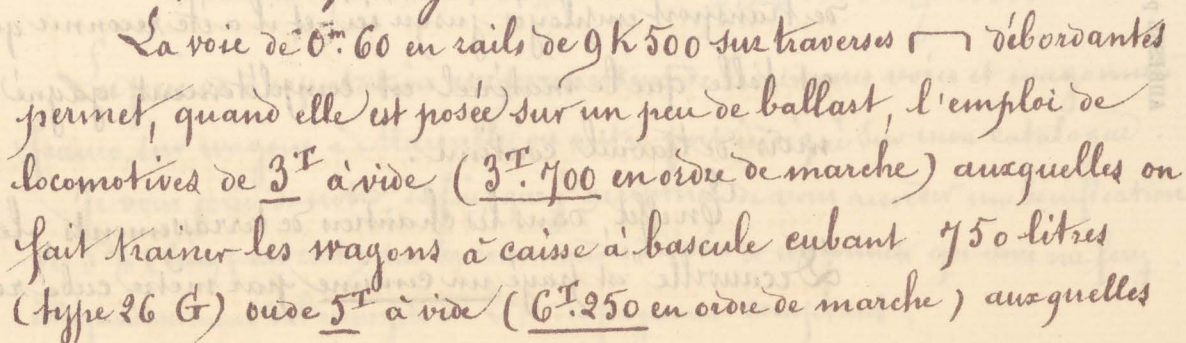 La voie de 0m.60 en rails de 9K500 sur traverses débordantes
permet, quand elle est posée sur un peu de ballast, l'emploi de
locomotives de 3T à vide (3T.700 en ordre de marche) auxquelles on
fait trainer les wagons à caisse à bascule cubant 750 litres
(type 26 G) ou de 5T à vide (6T.250 en ordre de marche) auxquelles